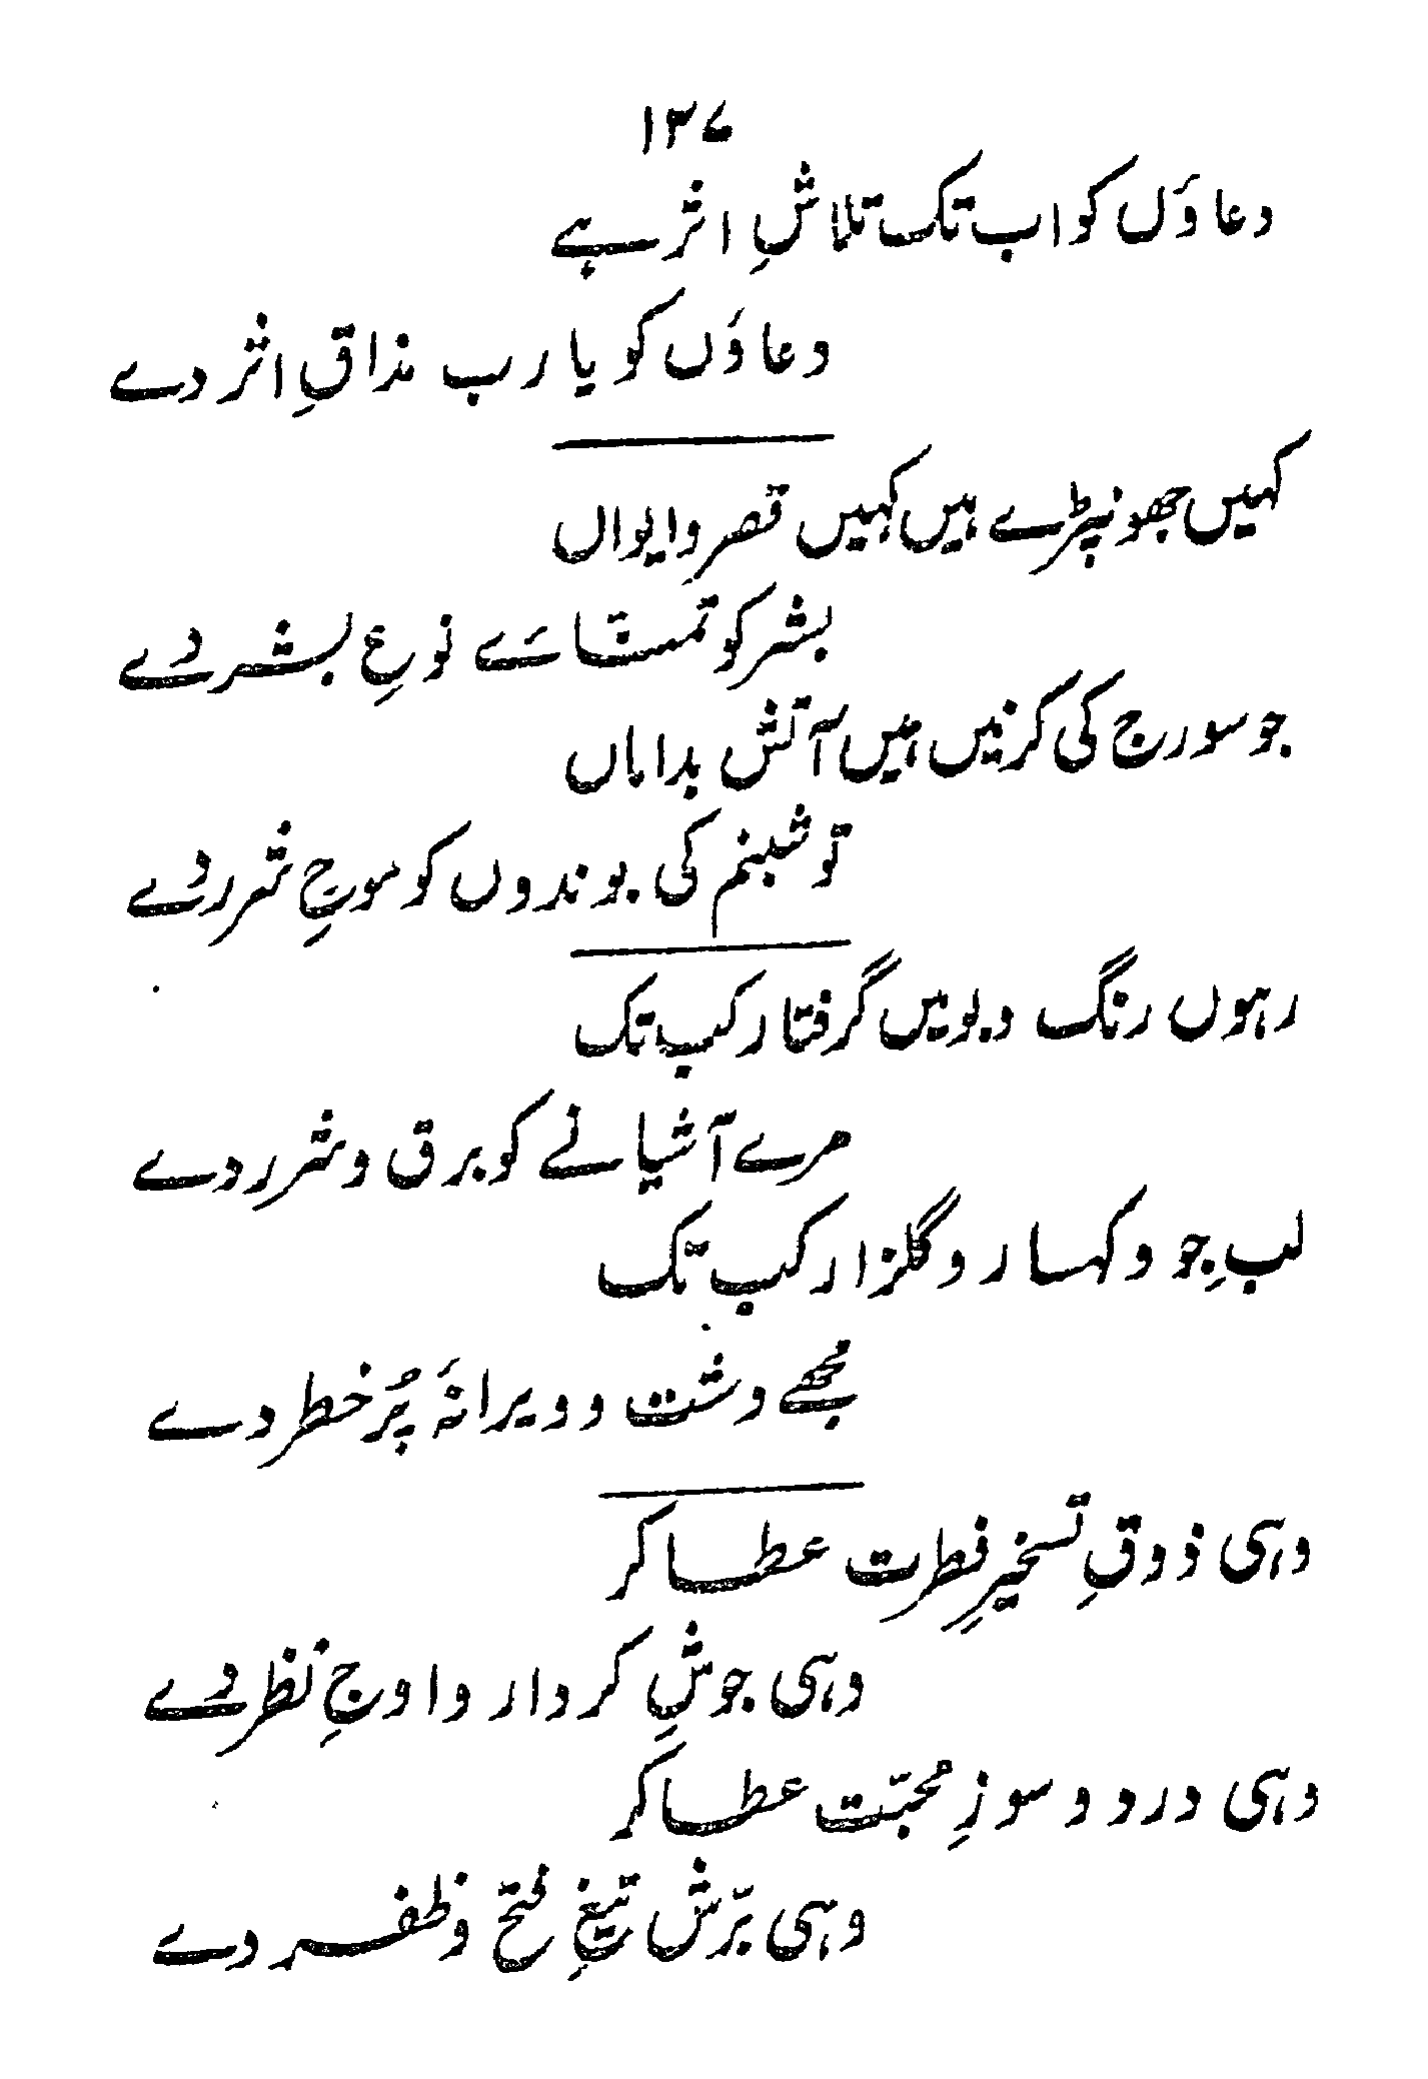 ۱۳۷
دعاؤں کو اب تک تلاشِ اثر ہے
دعاؤں کو یا رب مذاقِ اثر دے
کہیں جھونپڑے ہیں کہیں قصر و ایواں
بشر کو تمنائے نوعِ بشر دے
جو سورج کی کرنیں ہیں آتش بداماں
تو شبنم کی بوندوں کو موجِ شرر دے
رہوں رنگ و بو میں گرفتار کب تک
مرے آشیانے کو برق و شرر دے
لبِ جو و کہسار و گلزار کب تک
مجھے دشت و ویرانۂ پُر خطر دے
وہی ذوقِ تسخیرِ فطرت عطا کر
وہی جوشِ کردار و اوجِ نظر دے
وہی درد و سوزِ محبّت عطا کر
وہی برّش تیغِ فتح و ظفر دے